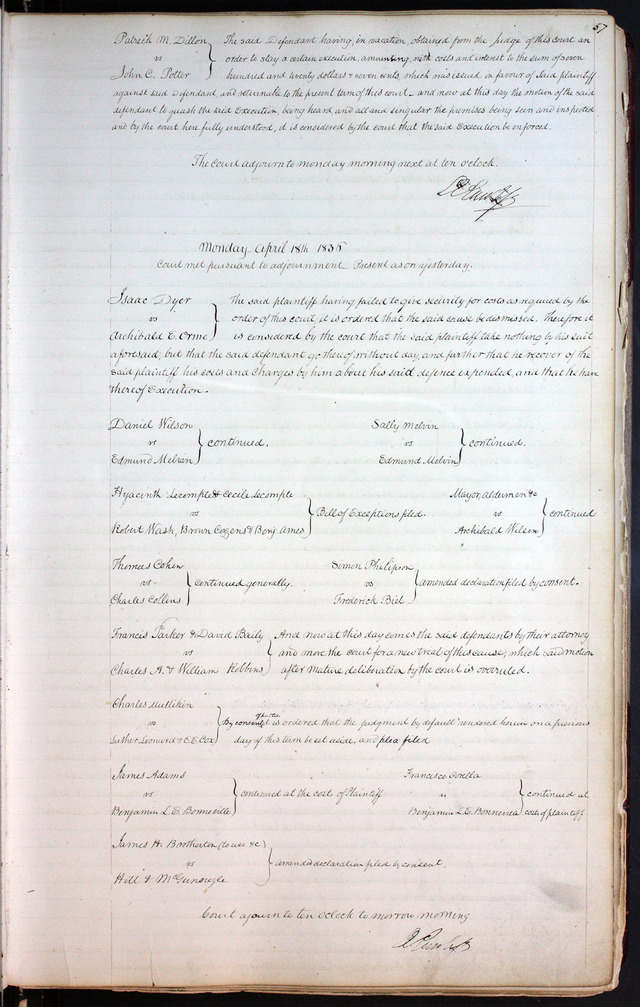 57
Patrick M. Dillon
vs
John C. Potter
The said Defendant having, in vacation, obtained from the Judge of this court an
order to stay a certain execution, amounting, with costs and interest to the sum of seven
hundred and twenty dollars & seven cents, which was issued in favour of said plaintiff
against said Defendant, and returnable to the present term of this court — and now at this day the motion of the said
defendant to quash the said Execution, being heard and all and singular the premises being seen and inspected
and by the court here fully understood, it is considered by the court that the said Execution be enforced.
The Court adjourn to monday morning next at ten o'clock.
Monday April 18th 1835
Court met pursuant to adjournment Present as on yesterday.
Isaac Dyer
vs
Archibald E. Orme
The said plaintiff having failed to give security for costs as required by the
order of this court, it is ordered that the said cause be dismissed. Therefore it
is considered by the court that the said plaintiff take nothing by his suit
aforesaid; but that the said defendant go thereof without day, and further that he recover of the
said plaintiff his costs and charges by him about his said defence expended, and that he have
thereof Execution.
Daniel Wilson
vs
Edmund Melvan
continued.
Sally Melvin
vs
Edmund Melvin
continued.
Hyacinth Lecompte & Cecile Lecompte
vs
Robert Wash, Brown Cozens & Benj. Ames
Bill of Exceptions filed.
Mayor, Aldermen &c
vs
Archibald Wilson
continued
Thomas Cohen
vs
Charles Collins
continued generally.
Simon Philipson
vs
Frederick Biel
amended declaration filed by consent.
Francis Parker & David Baily
vs
Charles A. & William Robbins
And now at this day comes the said defendants by their attorney
and move the court for a new trial of this cause, which said motion
after mature deliberation by the court is overruled.
Charles Mullikin
vs
Luther Leonard & E. E. Cox
By consent it is ordered that the judgment by default rendered herein on a previous
day of this term be set aside, and plea filed
James Adams
vs
Benjamin L. E. Bonneville
continued at the cost of Plaintiff
Francisco Orella
vs
Benjamin L. E. Bonnevea
continued at
cost of plaintiff
James H. Brotherton (to use &c)
vs
Hill & McGunnegle
amended declaration filed by consent.
Court ajourn to ten Oclock to morrow morning